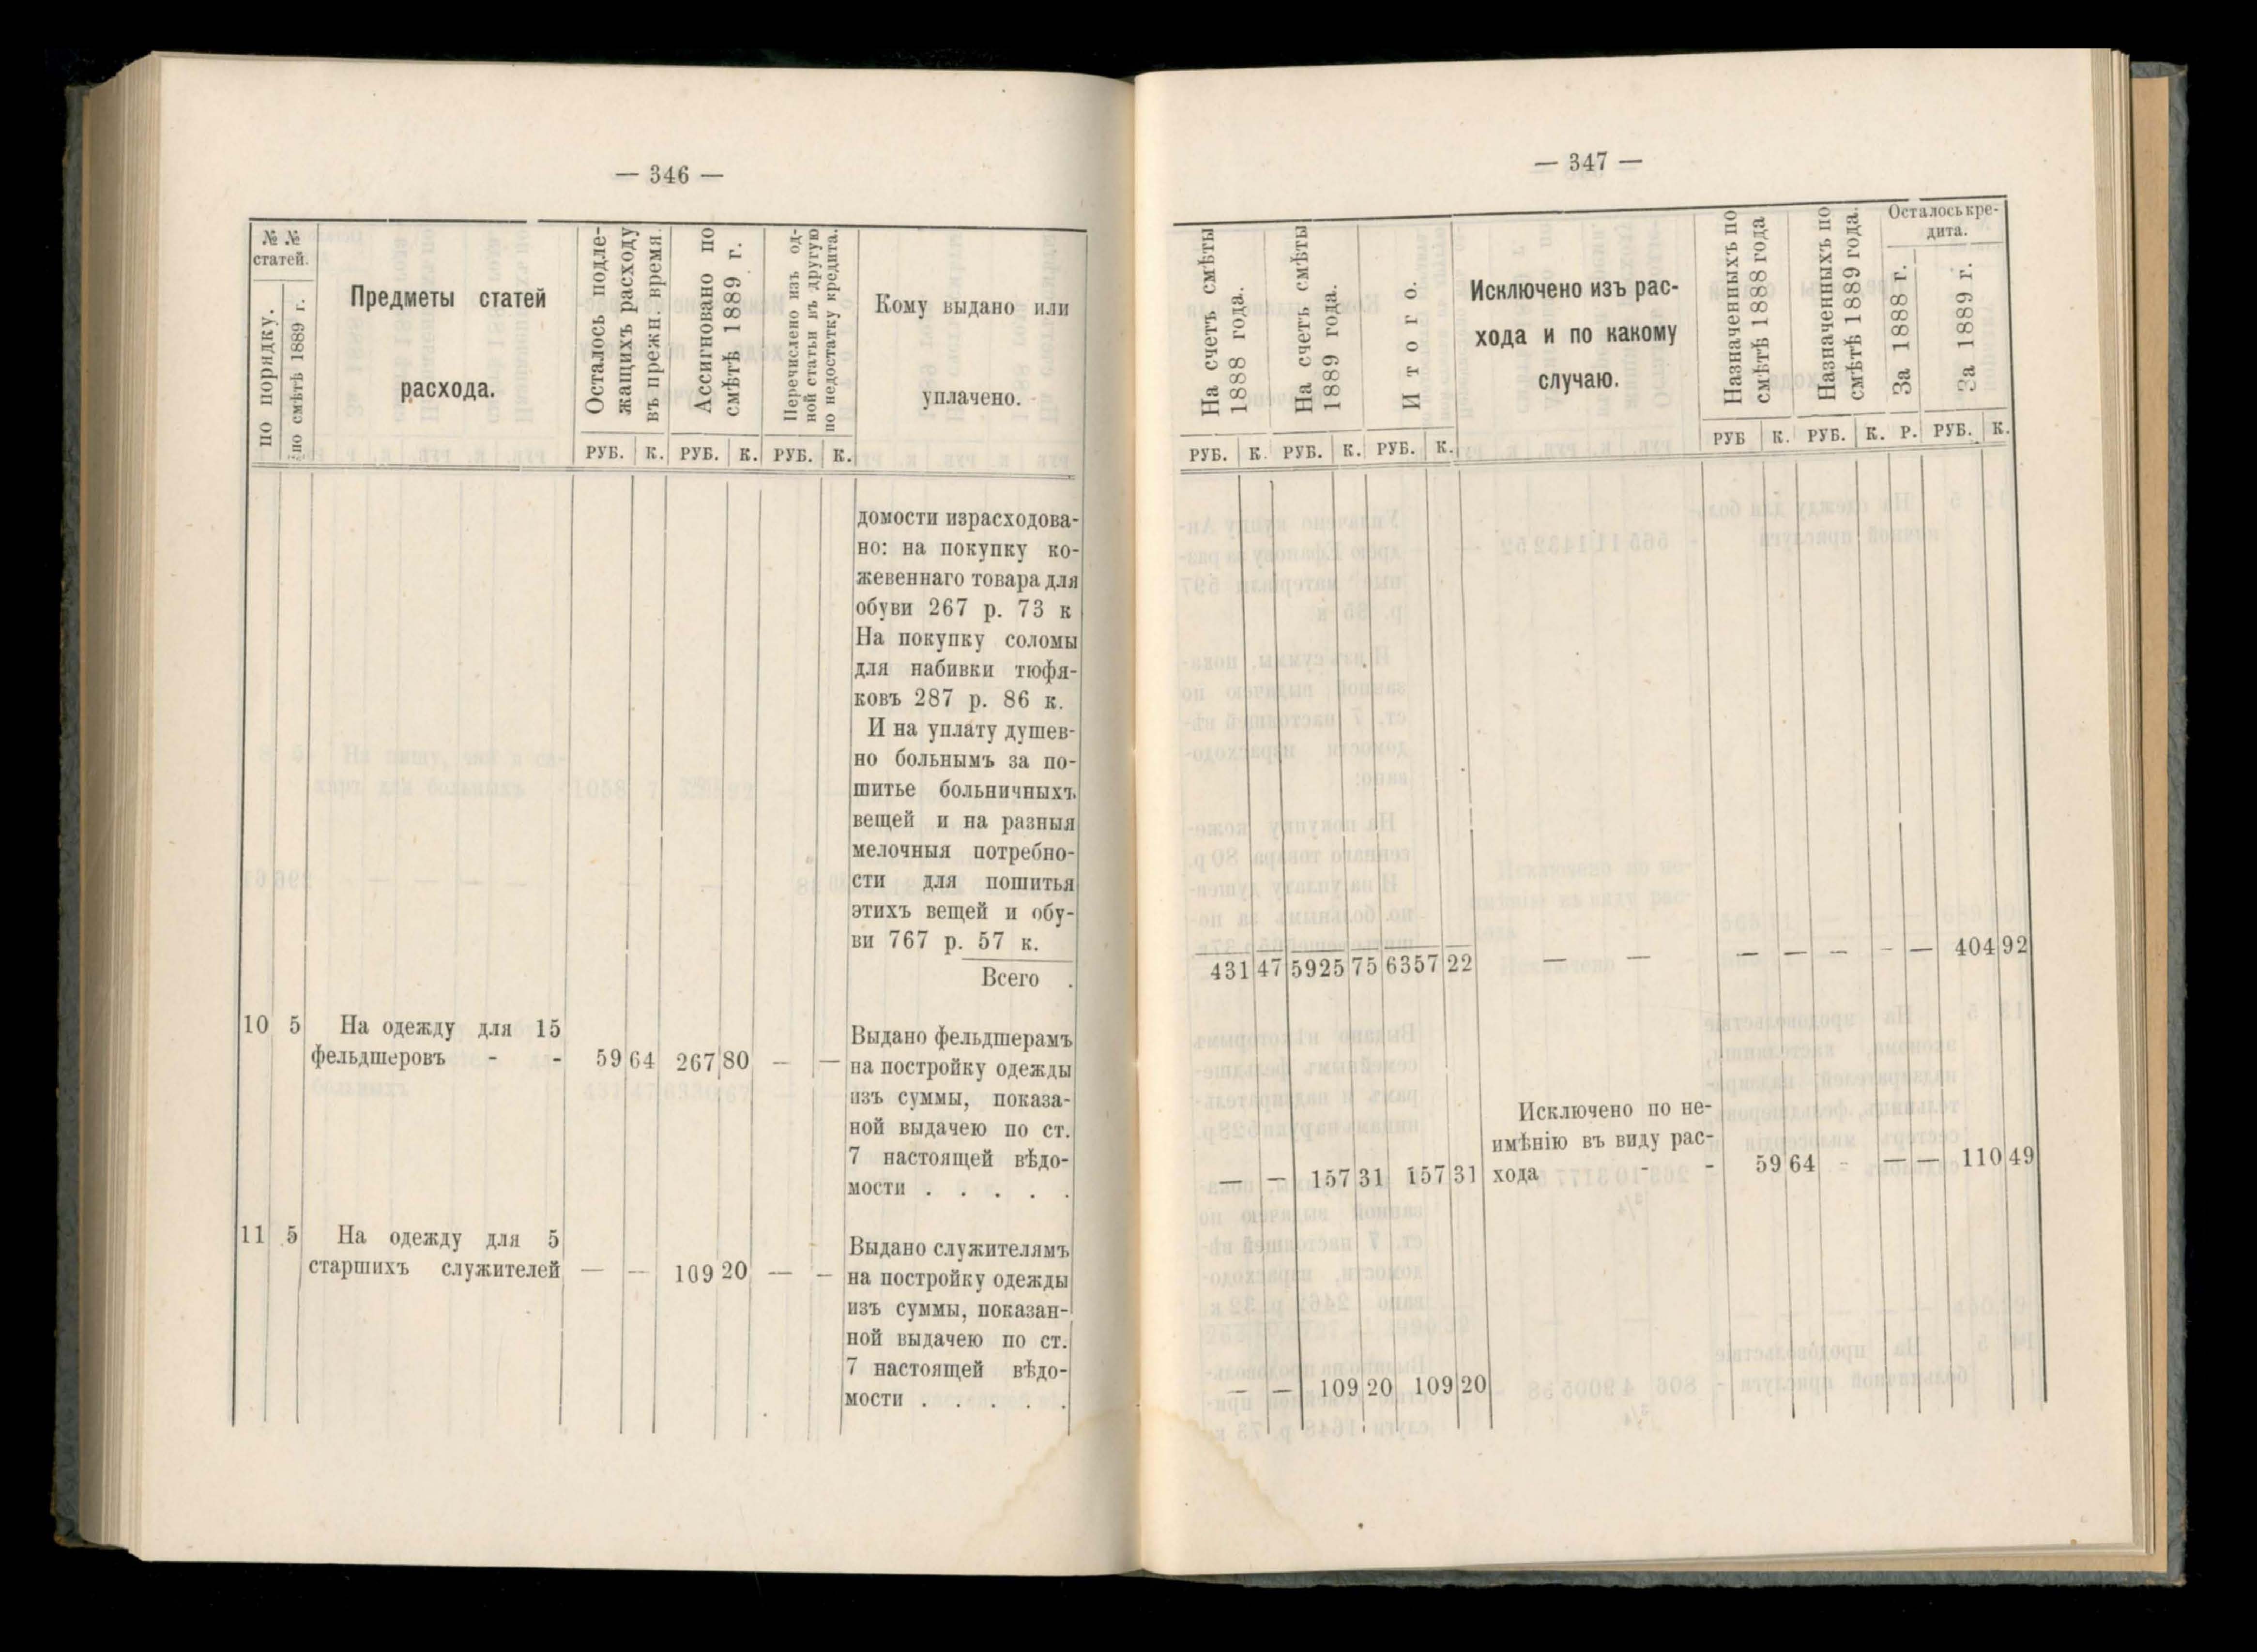 — 346 —
№ №
статей.
по порядку.
по смѣтѣ 1889 г.
Предметы статей
расхода.
Осталось подле-
жащихъ расходу
въ прежн. время.
Ассигновано по
смѣтѣ 1889 г.
Перечислено изъ од-
ной статьи въ другую
по недостатку кредита.
Кому выдано или
уплачено.
РУБ. К. РУБ. К. РУБ. К.
домости израсходова-
но: на покупку ко-
жевеннаго товара для
обуви 267 р. 73 к
На покупку соломы
для набивки тюфя-
ковъ 287 р. 86 к.
И на уплату душев-
но больнымъ за по-
шитье больничныхъ
вещей и на разныя
мелочныя потребно-
сти для пошитья
этихъ вещей и обу-
ви 767 р. 57 к.
Всего .
10 5 На одежду для 15
фельдшеровъ - - 59 64 267 80 — —
Выдано фельдшерамъ
на постройку одежды
изъ суммы, показа-
ной выдачею по ст.
7 настоящей вѣдо-
мости . . . . .
11 5 На одежду для 5
старшихъ служителей — — 109 20 — —
Выдано служителямъ
на постройку одежды
изъ суммы, показан-
ной выдачею по ст.
7 настоящей вѣдо-
мости . . . . .
— 347 —
На счетъ смѣты
1888 года.
На счетъ смѣты
1889 года.
Итого.
Исключено изъ рас-
хода и по какому
случаю.
Назначенныхъ по
смѣтѣ 1888 года
Назначенныхъ по
смѣтѣ 1889 года.
Осталось кре-
дита.
За 1888 г.
За 1889 г.
РУБ. К. РУБ. К. РУБ. К. РУБ К. РУБ. К. Р. РУБ. К.
431 47 5925 75 6357 22 — — — — — - — 404 92
Исключено по не-
имѣнію въ виду рас-
— — 157 31 157 31 хода - - 59 64 - — — 110 49
— — 109 20 109 20